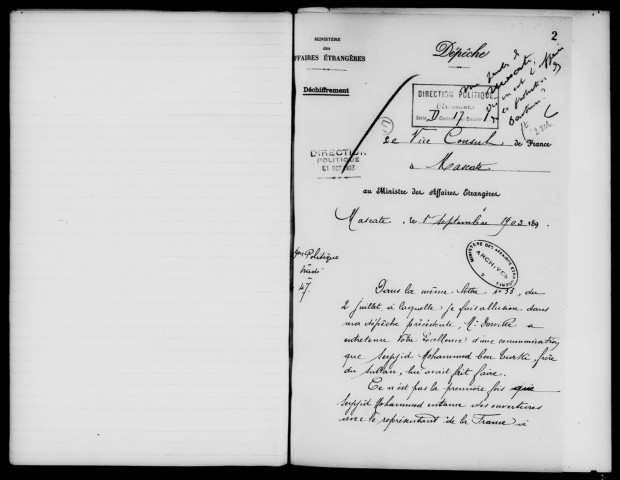 2
MINISTÈRE
des
AFFAIRES ÉTRANGÈRES
Déchiffrement
Dépêche
DIRECTION POLITIQUE
D 17
DIRECTION
POLITIQUE
Le Vice Consul de France
à Mascate
au Ministre des Affaires Etrangères
Mascate, le 1er septembre 1903 189
MINISTÈRE DES AFFAIRES ÉTRANGÈRES
ARCHIVES
Politique
47
Dans la même lettre n° 38, du
2 juillet, à laquelle je fais allusion dans
ma dépêche précédente, Mr Dorville a
entretenu Votre Excellence d'une communication
que Seyyid Mohammed ben Turki, frère
du sultan, lui avait fait faire.
Ce n'est pas la première fois que
Seyyid Mohammed entame des ouvertures
avec le représentant de la France à